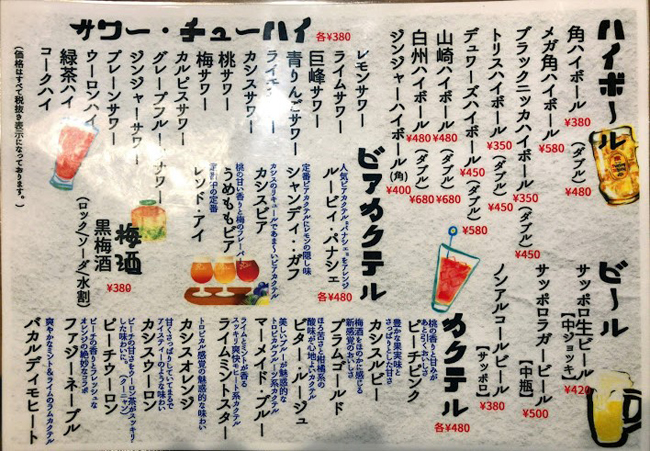 ハイボール
角ハイボール ¥380
(ダブル) ¥480
メガ角ハイボール ¥580
ブラックニッカハイボール ¥350
(ダブル) ¥450
トリスハイボール ¥350
(ダブル) ¥450
デュワーズハイボール ¥450
(ダブル) ¥580
山崎ハイボール ¥480
(ダブル) ¥680
白州ハイボール ¥480
(ダブル) ¥680
ジンジャーハイボール(角) ¥400
サワー・チューハイ 各¥380
レモンサワー
ライムサワー
巨峰サワー
青りんごサワー
ライチサワー
カシスサワー
桃サワー
梅サワー
カルピスサワー
グレープフルーツサワー
ジンジャーサワー
プレーンサワー
ウーロンハイ
緑茶ハイ
コークハイ
(価格はすべて税抜き表示になっております。)
ビール
サッポロ生ビール
【中ジョッキ】 ¥420
サッポロラガービール
【中瓶】 ¥500
ノンアルコールビール
【サッポロ】 ¥380
ビアカクテル 各¥480
人気ビアカクテル“パナシェ”をアレンジ
ルービィ・パナシェ
定番ビアカクテルにレモンの隠し味
シャンディ・ガフ
カシスのリキュールであま〜いビアカクテル
カシスビア
桃の甘い香りと梅のフレーバー
うめももビア
レッド・アイ
梅酒
黒梅酒 ¥380
(ロック/ソーダ/水割)
カクテル 各¥480
桃の香りと甘みが
あと引くおいしさ
ピーチピンク
豊かな果実味と
さっぱりとした甘さ
カシスルビー
梅酒をほのかに感じる
新感覚のおいしさ
プラムゴールド
ほろ苦さと柑橘系の
酸味が心地よいカクテル
ビター・ルージュ
美しいブルーが魅惑的な
トロピカルフルーツ系カクテル
マーメイド・ブルー
ライムとミントが香る
スッキリ爽快モヒート系カクテル
ライムミスター
トロピカル感覚の魅惑的な味わい
カシスオレンジ
甘くさっぱりとしていてまるで
アイスティーのような味わい
カシスウーロン
ピーチの甘さをウーロン茶がスッキリ
した味わいに。(クーニャン)
ピーチウーロン
ピーチの香りとフレッシュな
オレンジの絶妙なコラボ
ファジーネーブル
爽やかなミント&ライムのラムカクテル
バカルディモヒート